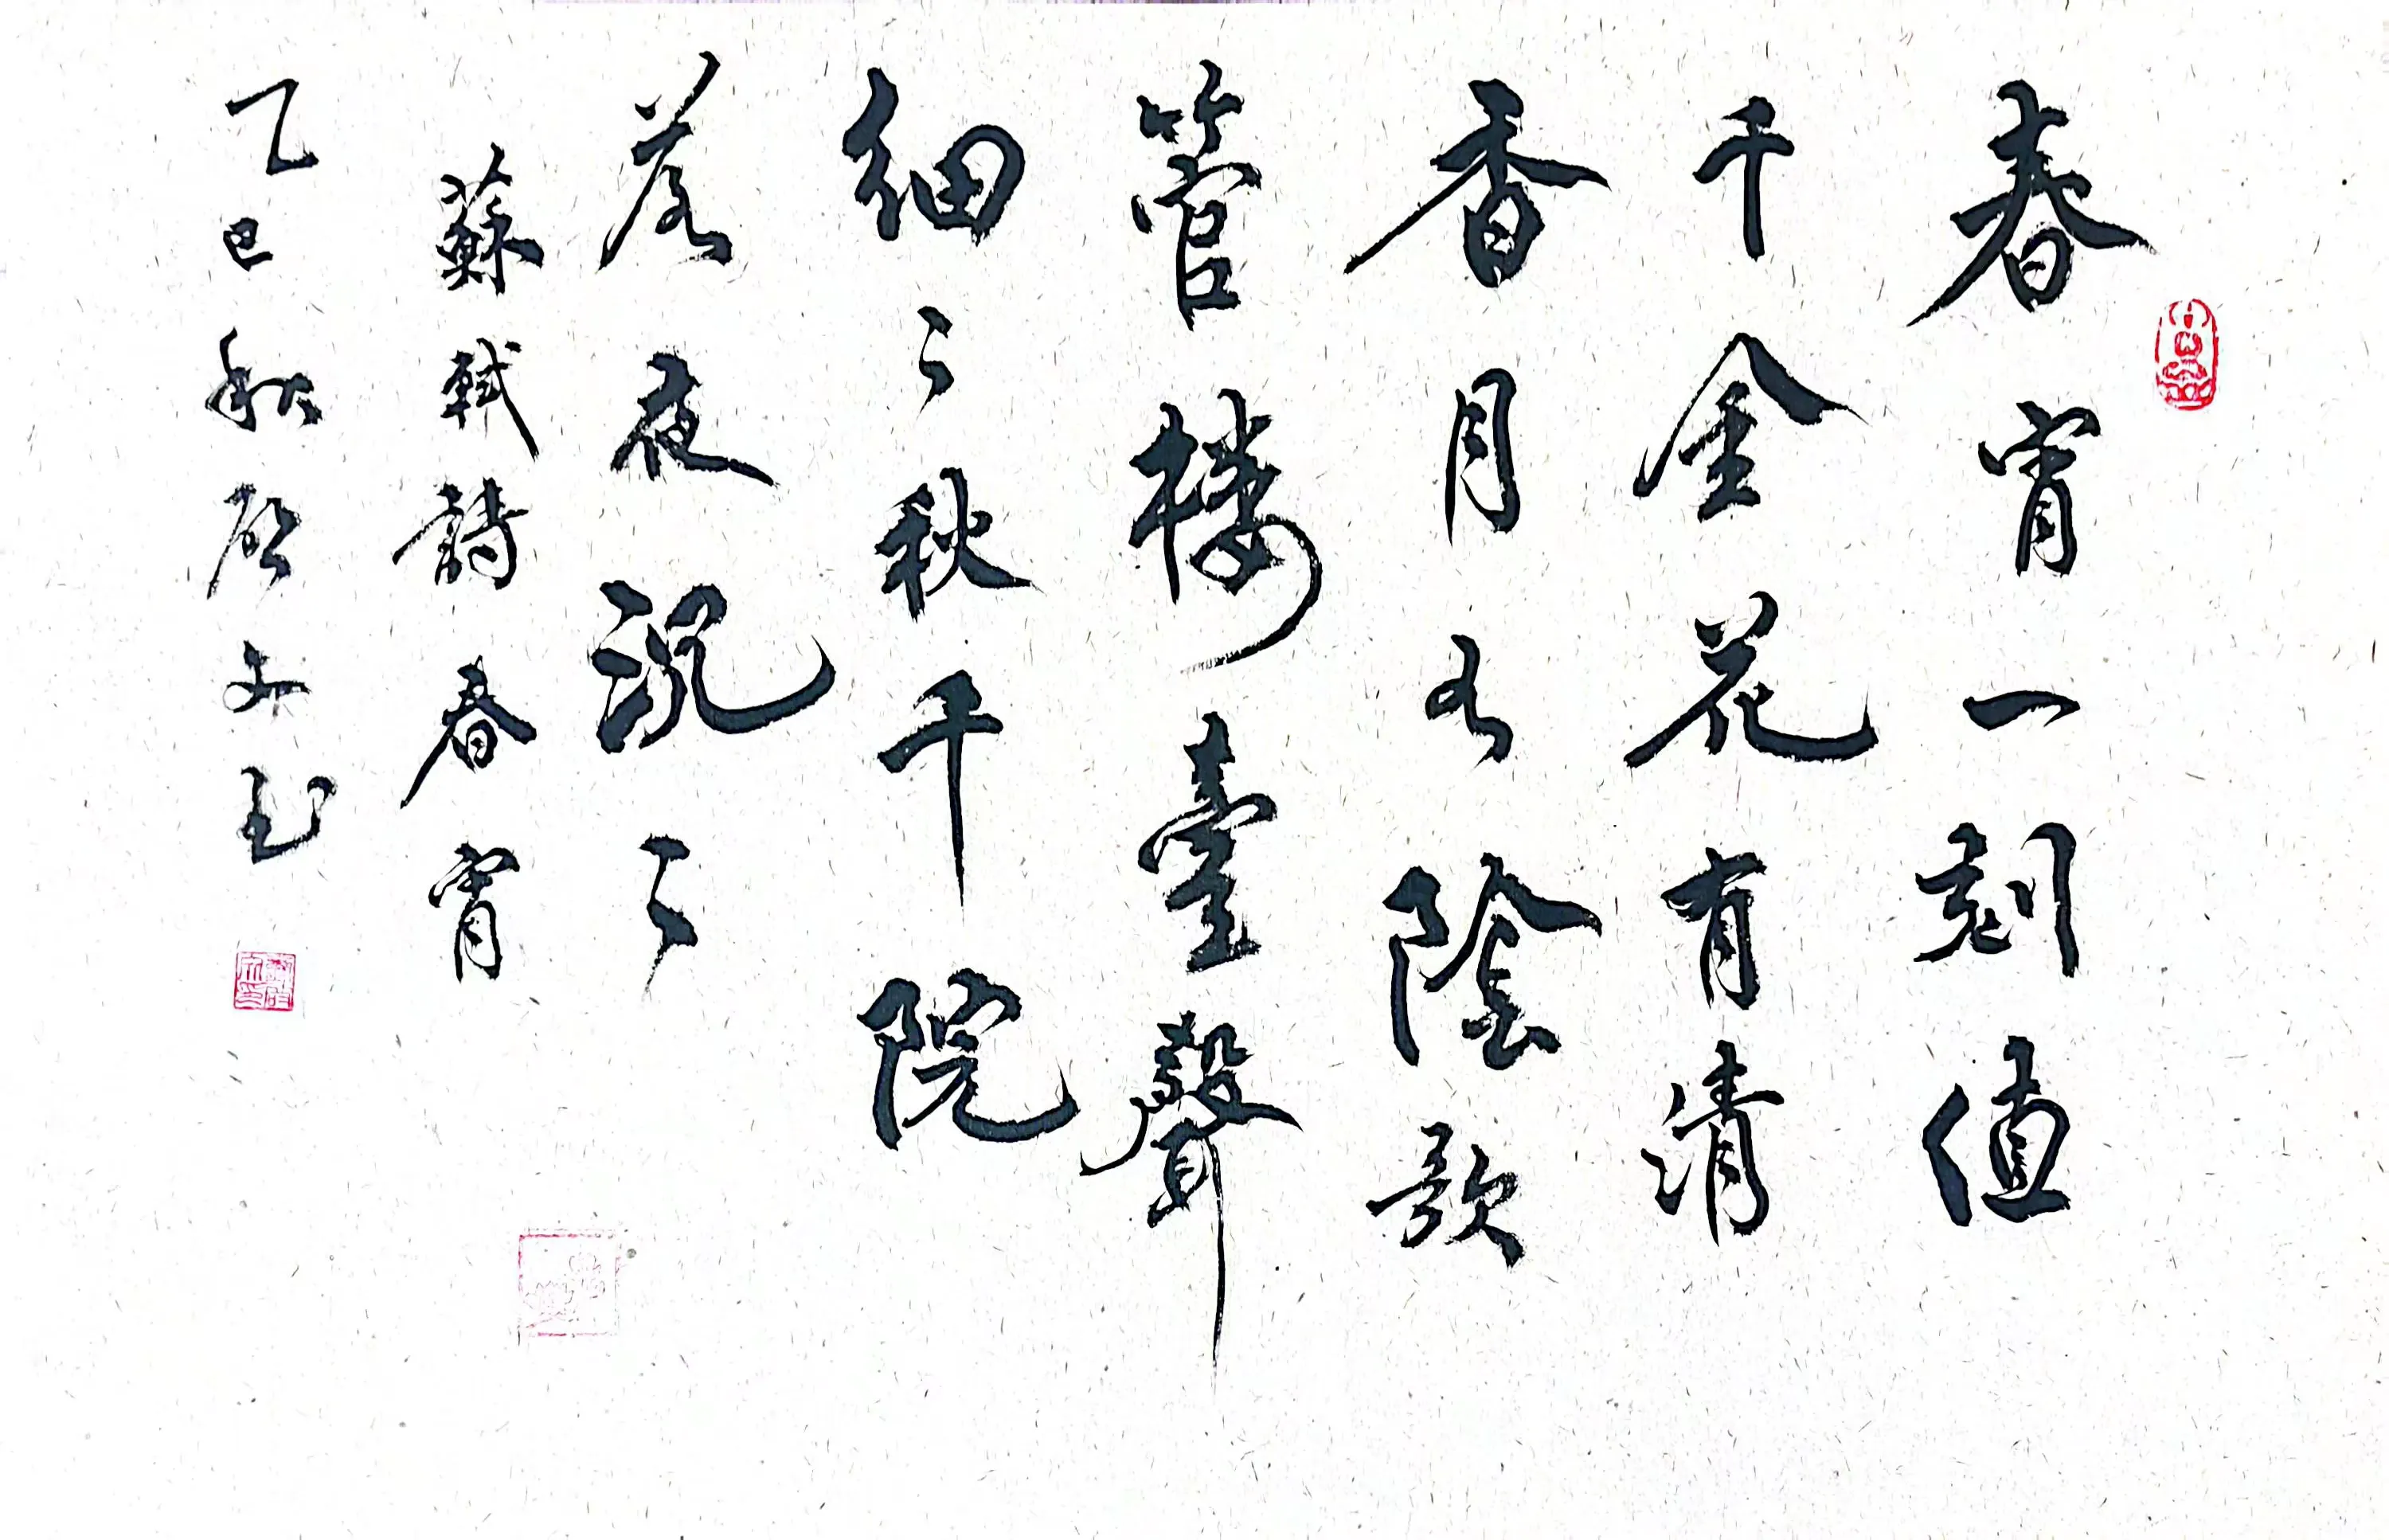 春宵一刻值
千金花有清
香月有陰歌
管樓臺聲
細々秋千院
落夜沉々
蘇軾詩春宵
乙巳秋文书